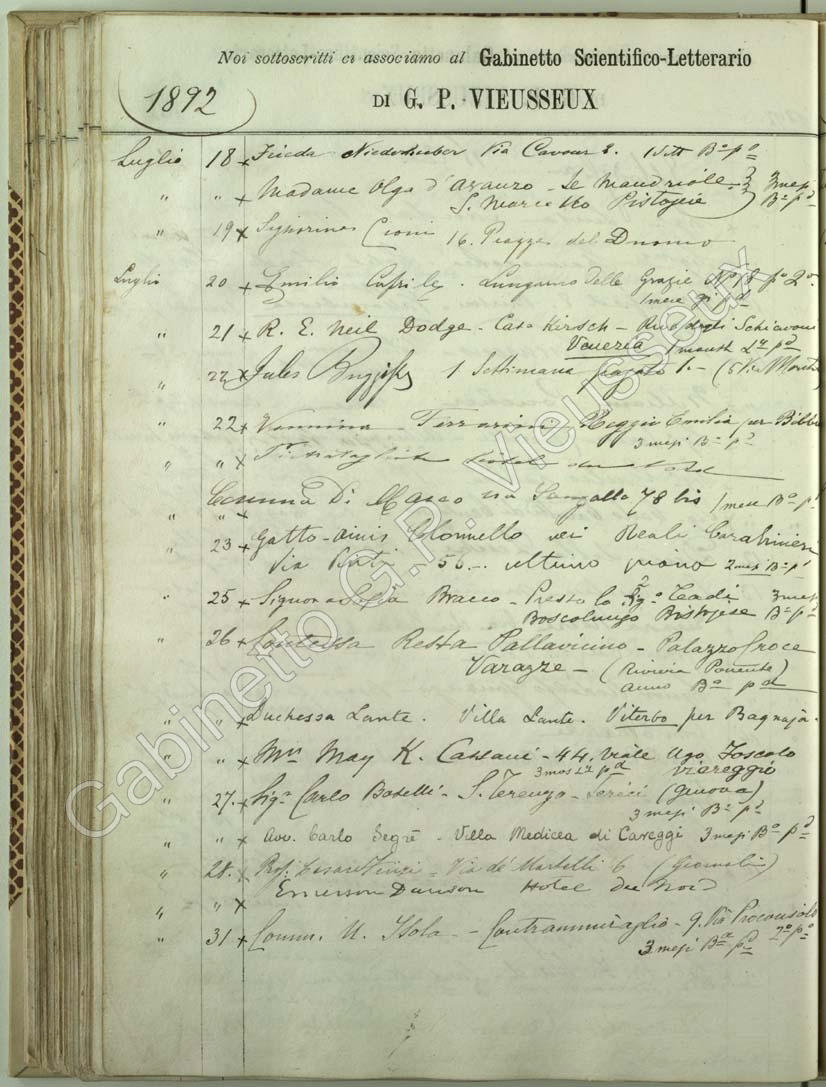 Noi sottoscritti ci associamo al Gabinetto Scientifico-Letterario
1892
DI G. P. VIEUSSEUX
Luglio 18 x Frieda Niederhuber Via Cavour 2. Bᵒ pᵒ
" " x Madame Olga d' - Le 3 mesi
S. Marcello Pistojese Bᵒ pᵒ
" 19 x Signorina Cioni 16. Piazza del Duomo
Luglio 20 x Emilio - Lungarno delle Grazie Nº 18 pº 2º
1 mese
" 21 x R. E. Neil Dodge - Casa Kirsch - Riva degli Schiavoni
Venezia 1 month pᵈ
" 22 x Jules 1 Settimana pagato 1. -
" 22 x Reggio Emilia per
3 mesi Bᵒ pᵒ
" " x
" " x Di Marco via Sangallo 78 bis 1 mese Bᵒ pᵒ
" 23 x Gatto Colonnello nei Reali Carabinieri
Via 56 - ultimo piano 2 mesi Bᵒ pᵒ
" 25 x Signora Sofia Bracco - Presso lo 3 mesi
Boscolungo Pistojese Bᵒ pᵒ
" 26 x Contessa Resta Pallavicino - Palazzo Croce
Varazze - (Riviera Ponente)
anno Bᵒ pᵒ
" " x Duchessa Lante. Villa Lante. Viterbo per Bagnaja.
" " x Mrs May K. Cassani - 44, viale Ugo Foscolo
3 mos pᵈ Viareggio
" 27. x Sigʳ Carlo Boselli - S. Terenzo - Lerici (Genova)
3 mesi Bᵒ pᵒ
" " x Avv. Carlo Segrè - Villa Medicea di Careggi 3 mesi Bᵒ pᵒ
" 28. x Prof. - Via de' Martelli 6 (Giornali)
" " x Emerson Dawson Hotel du Nord
" 31 x Comm. U. Isola - Contrammiraglio - 9. Via Proconsolo
3 mesi Bᵒ pᵒ 2º pº
Gabinetto G.P. Vieusseux